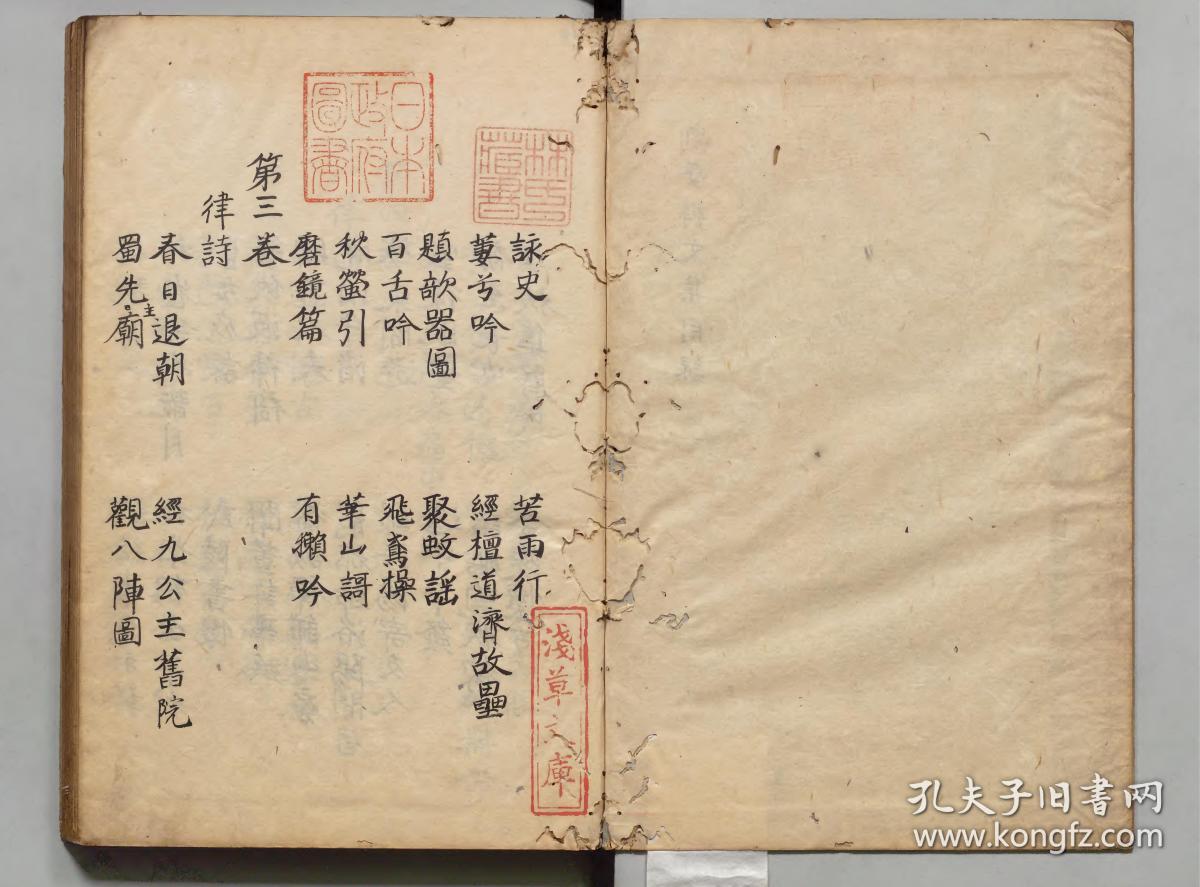 詠史 苦雨行
萋兮吟 經檀道濟故壘
題欹器圖 聚蚊謡
百舌吟 飛鳶操
秋螢引 華山謌
磨鏡篇 有獺吟
第三卷
律詩
春日退朝 經九公主舊院
蜀先主廟 觀八陣圖
林氏藏書
日本政府圖書
淺草文庫
孔夫子旧書网
www.kongfz.com